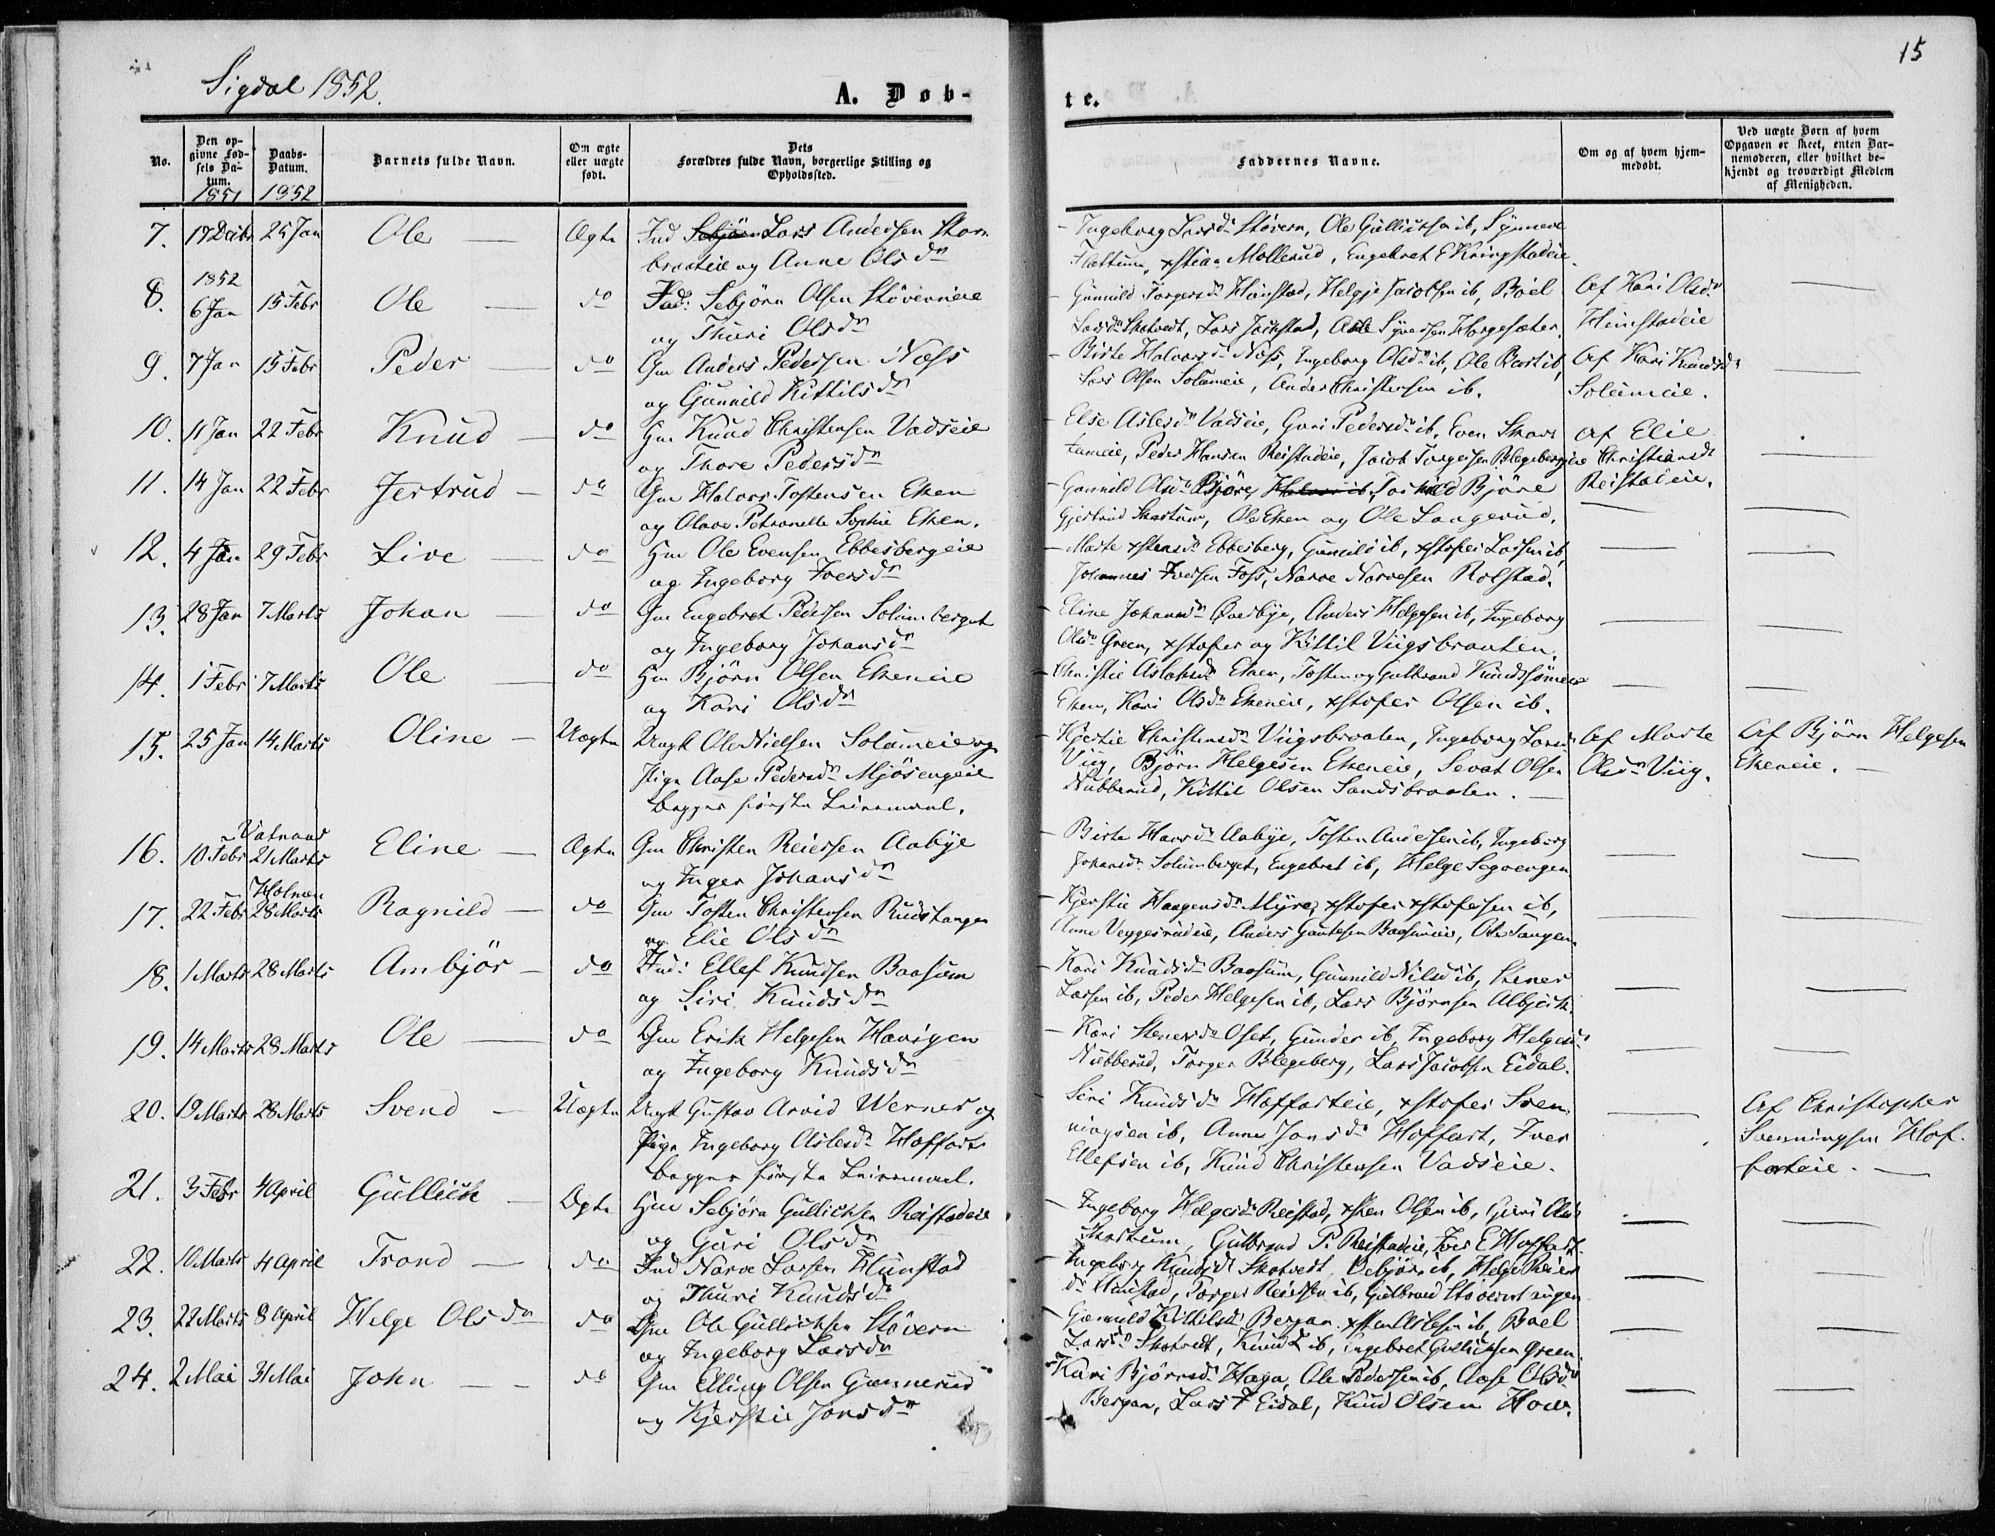 Sigdal 1852.
A. Døb-
te.
15
No.
Den opgivne Fødsels Datum.
Daabs-Datum.
Barnets fulde Navn.
Om ægte eller uægte født.
Dets Forældres fulde Navn, borgerlige Stilling og Opholdssted.
Faddernes Navne.
Om og af hvem hjemmedøbt.
Ved uægte Børn af hvem Opgaven er skeet, enten Barnemoderen, eller hvilket bekjendt og troværdigt Medlem af Menigheden.
1851 1852
7. 17 Decbr 25 Jan Ole — Ægte Ind Lars Andersen
braateie og Anne Olsdr
Ingeborg Larsdr Støvern, Ole Gullichsen ib, Synneve
Flattum, Mollerud, Engebret E Kringstadeie
1852
8. 6 Jan 15 Febr Ole — do Ind: Sebjørn Olsen Støverneie
og Thuri Olsdr
Gunnild Torgersdr Hunstad, Helge Jacobsen ib, Boel
Larsdr Skatvedt, Lars Jackstad, Asle Syversen Horgesæter
Af Kari Olsdr
Hunstadeie —
9. 7 Jan 15 Febr Peder — do Gm Anders Pedersen Næss
og Gunnild Kittilsdr
Birte Halvorsdr Næss, Ingeborg Olsdr ib, Ole ib,
Lars Olsen Solumeie, Anders Christensen ib.
Af Kari Knudsdr
Solumeie. —
10. 11 Jan 22 Febr Knud — do Gm Knud Christensen Vadseie
og Thore Pedersdr
Else Aslesdr Vadseie, Guri Pedersdr ib, Even Skars
tumeie, Peder Hansen Reistadeie, Jacob Torgersen Blegebergeie
Af Elie
Christiansdr
Reistadeie. —
11. 14 Jan 22 Febr Jertrud — do Gm Halvor Tostensen Eken
og Olave Petronelle Sophie Eken.
Gunnild Olsdr Bjøre, Bjøre
Gjertrud Skartum, Ole Eken og Ole Laagerud. — —
12. 4 Jan 29 Febr Live — do Gm Ole Evensen Ebbesbergeie
og Ingeborg Iversdr
Marte xstensdr Ebbesberg, Gunild ib, xstofer Larsen ib,
Johannes Iversen Foss, Narve Narvesen Rolstad. — —
13. 28 Jan 7 Marts Johan — do Gm Engebret Pedersen Solumberget
og Ingeborg Johansdr
Eline Johansdr Øverbye, Anders Helgesen ib, Ingeborg
Olsdr Green, xstofer og Kittil Viigsbraaten. — —
14. 1 Febr 7 Marts Ole — do Gm Bjørn Olsen Ekeneie
og Kari Olsdr
Christie Aslaksdr Eken, Tosten og Gulbrand Knudssønner
Eken, Kari Olsdr Ekeneie, xstofer Olsen ib. — —
15. 25 Jan 14 Marts Oline — Uægte Ungk Ole Nielsen Solumeie og
Pige Aase Pedersdr Mjøsengeie
begges første Leiermaal.
Kjertie Christensdr Viigsbraaten, Ingeborg Larsdr
Viig, Bjørn Helgesen Ekeneie, Sevat Olsen
Nubberud, Kittil Olsen Sandsbraaten. —
Af Marte
Olsdr Viig.
Af Bjørn Helgesen
Ekeneie. —
Vatnaas
16. 10 Febr 21 Marts Eline — Ægte Gm Christen Reiersen Aabye
og Inger Johansdr
Birte Hansdr Aabye, Tosten Andersen ib, Ingeborg
Johansdr Solumberget, Engebret ib, Helge — —
Holmen
17. 22 Febr 28 Marts Ragnild — do Gm Tosten Christensen Rudstangen
og Elie Olsdr
Kjerstie Haagensdr Myre, xstofer xstofersen ib,
Anne Veggerudeie, Anders Gautesen Baasumeie, Ole Tangen — —
18. 1 Marts 28 Marts Ambjør — do Ind: Ellef Knudsen Baasum
og Siri Knudsdr
Kari Knudsdr Baasum, Gunnild Nilsdr ib, Stener
Larsen ib, Peder Helgesen ib, Lars Bjørnsen Albjerk. — —
19. 14 Marts 28 Marts Ole — do Gm Erik Helgesen Haugen
og Ingeborg Knudsdr
Kari Stenersdr Oset, Gunder ib, Ingeborg Helgesdr
Nubberud, Torger Blegeberg, Lars Jacobsen Eidal. — —
20. 19 Marts 28 Marts Svend — Uægte Ungk Gustav Arvid Werner og
Pige Ingeborg Aslesdr Hoffart
begges første Leiermaal.
Siri Knudsdr Hoffarteie, xstofer Sven
ningsen ib, Anne Jonsdr Hoffart, Iver
Ellefsen ib, Knud Christensen Vadseie. —
Af Christopher
Svenningsen Hof-
farteie. —
21. 3 Febr 4 April Gullich — Ægte Gm Sebjørn Gullichsen Reistadeie
og Guri Olsdr
Ingeborg Helgesdr Reistad, xsten Olsen ib, Guri Olsdr
Skartum, Gulbrand P. Reistadeie, Iver E Hoffart. — —
22. 10 Marts 4 April Trond — do Ind Narve Larsen Hunstad
og Thuri Knudsdr
Ingeborg Knudsdr Skatvedt, Sebjørn ib, Helge Reiers
dr Hunstad, Torger Reiersen ib, Gulbrand — —
23. 22 Marts 8 April Helge Olsdr do Gm Ole Gullichsen Støvern
og Ingeborg Larsdr
Gunnild Kittilsdr Bergan, ib, Boel
Larsdr Skatvedt, Knud L ib, Engebret Gullichsen Green. — —
24. 2 Mai 31 Mai John — — do Gm Elling Olsen Gunnerud
og Kjerstie Jonsdr
Kari Bjørnsdr Haga, Ole Pedersen ib, Aase Olsdr
Bergan, Lars J Eidal, Knud Olsen Hove. — —